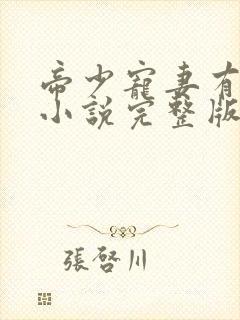 帝少寵妻有
小說完整版
張啓川